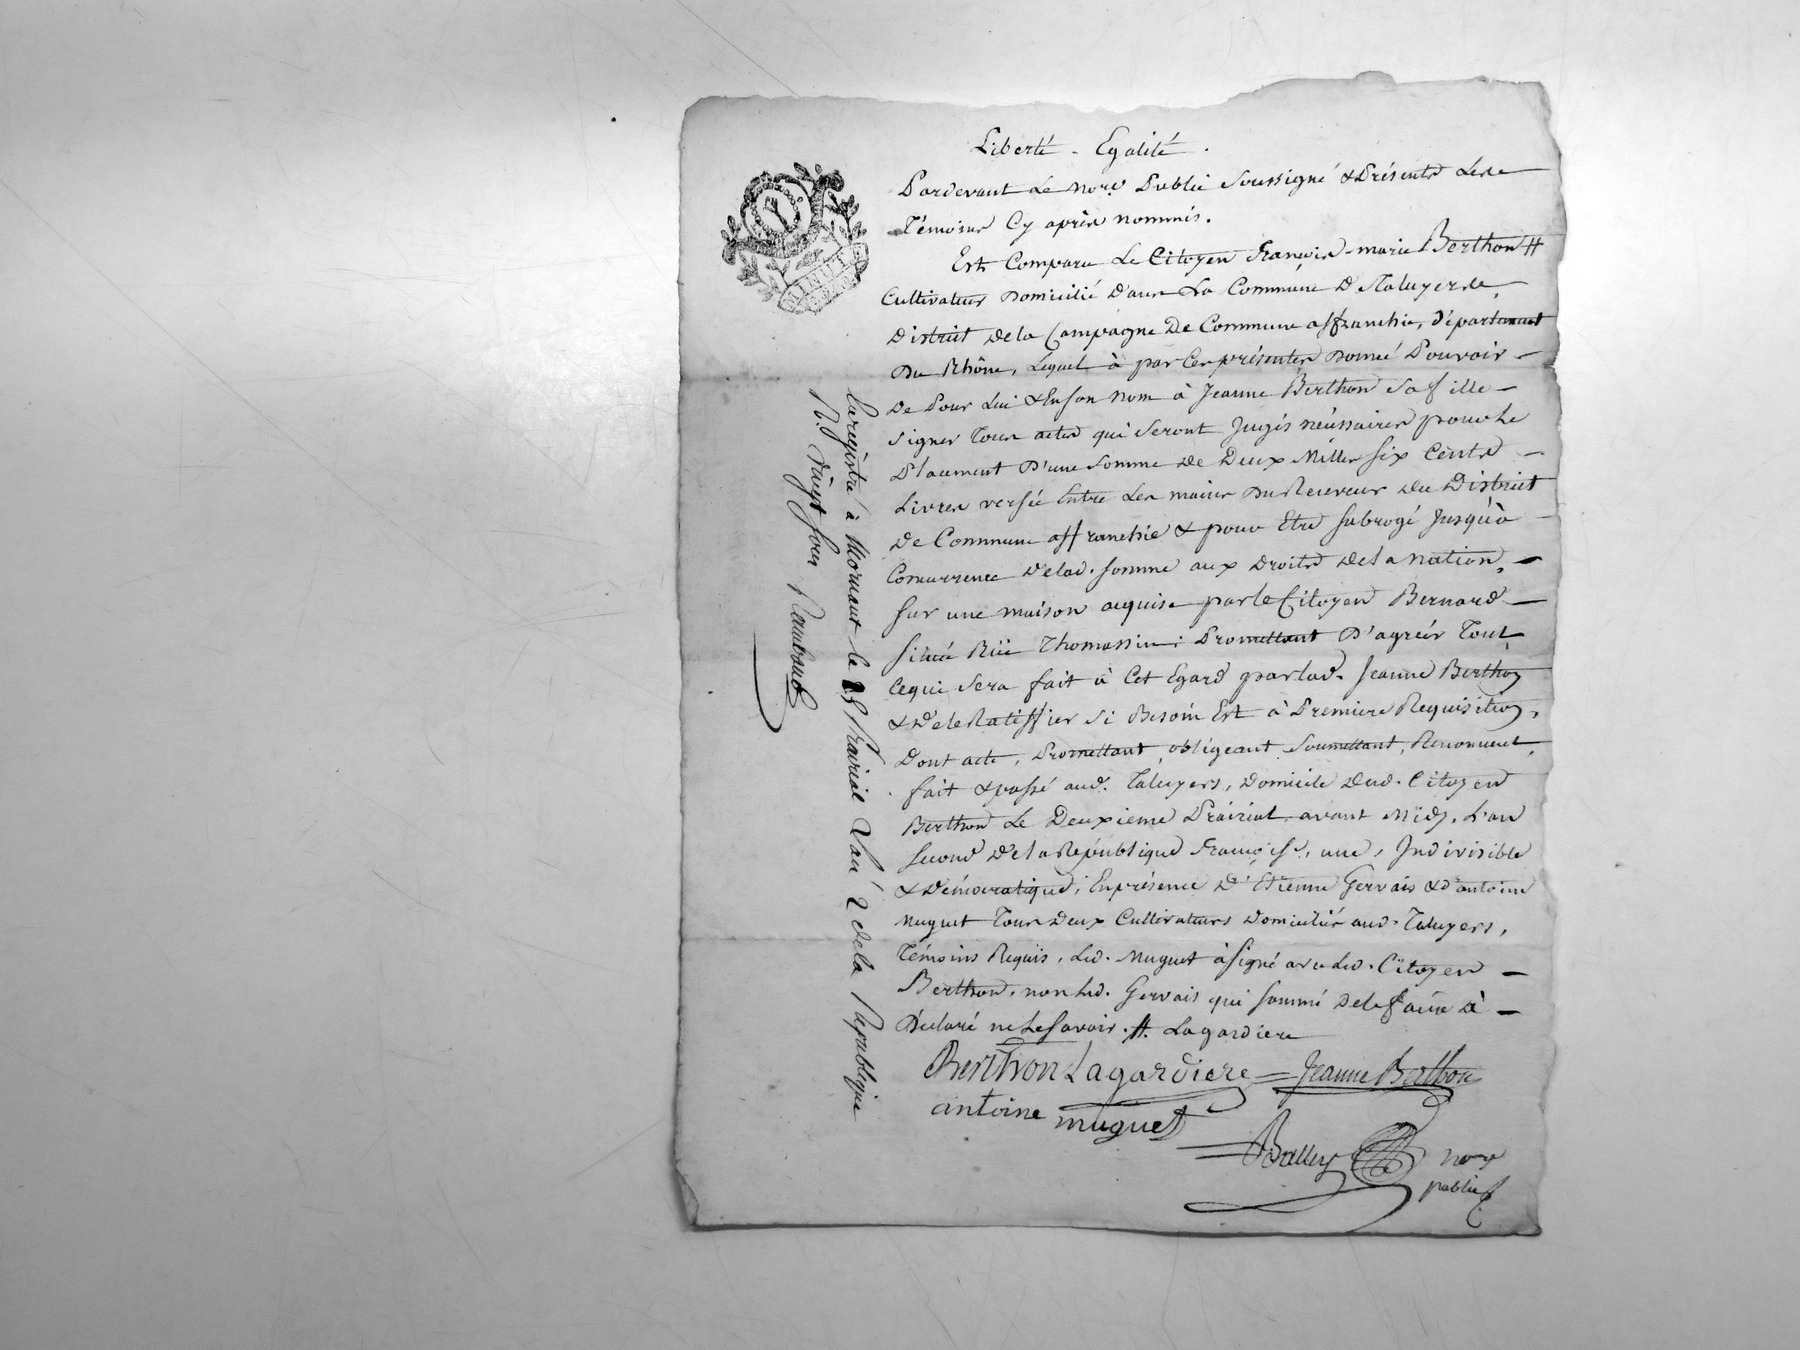 Liberté - Egalité.
Pardevant Le Nore. Public Soussigné & Présents Les
Témoins Cy après nommés.
Est Comparu Le Citoyen François-marie Berthon #
Cultivateur Domicilié Dans La Commune De Taluyers,
District de la Campagne De Commune affranchie, Département
Du Rhône, Lequel à par Ces présentes Donné Pouvoir
De Pour Lui & En son Nom à Jeanne Berthon Sa fille
Signer Tous actes qui Seront Jugés nécessaires pour Le
Placement D'une Somme De Deux Milles six Cents
Livres versée Entre Les mains Du Receveur Du District
De Commune affranchie & pour Etre subrogé Jusqu'à
Concurrence De lad. somme aux Droits de la Nation,
sur une maison acquise par le Citoyen Bernard
située Rüe Thomassin: Promettant D'agréer Tout
Ce qui Sera fait à Cet Egard par lad. Jeanne Berthon
& De le Ratiffier Si Besoin Est à Premiere Requisition,
Dont acte, Promettant, obligeant, Soumettant, Renonçent,
fait & passé aud. Taluyers, Domicile Dud. Citoyen
Berthon Le Deuxieme Prairial avant Midy, L'an
second De la République Françoise, une, Indivisible
& Démocratique; En présence D'Etienne Gervais & D'antoine
Muguet Tous Deux Cultivateurs Domiciliés aud. Taluyers,
Témoins Requis, Led. Muguet à signé avec Led. Citoyen
Berthon, non Led. Gervais qui sommé De le faire à
Déclaré ne Le savoir. #. Lagardiere
Berthon Lagardiere = Jeanne Berthon
antoine muguet
Balley Nore
public
Enregistré à Mornant le 25 Prairial L'an 2 de la Republique
R. vingt sous Rambaud